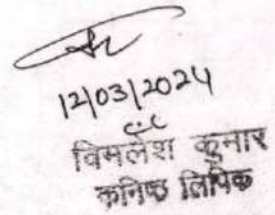 12/03/2024
विमलेश कुमार
कनिष्ठ लिपिक